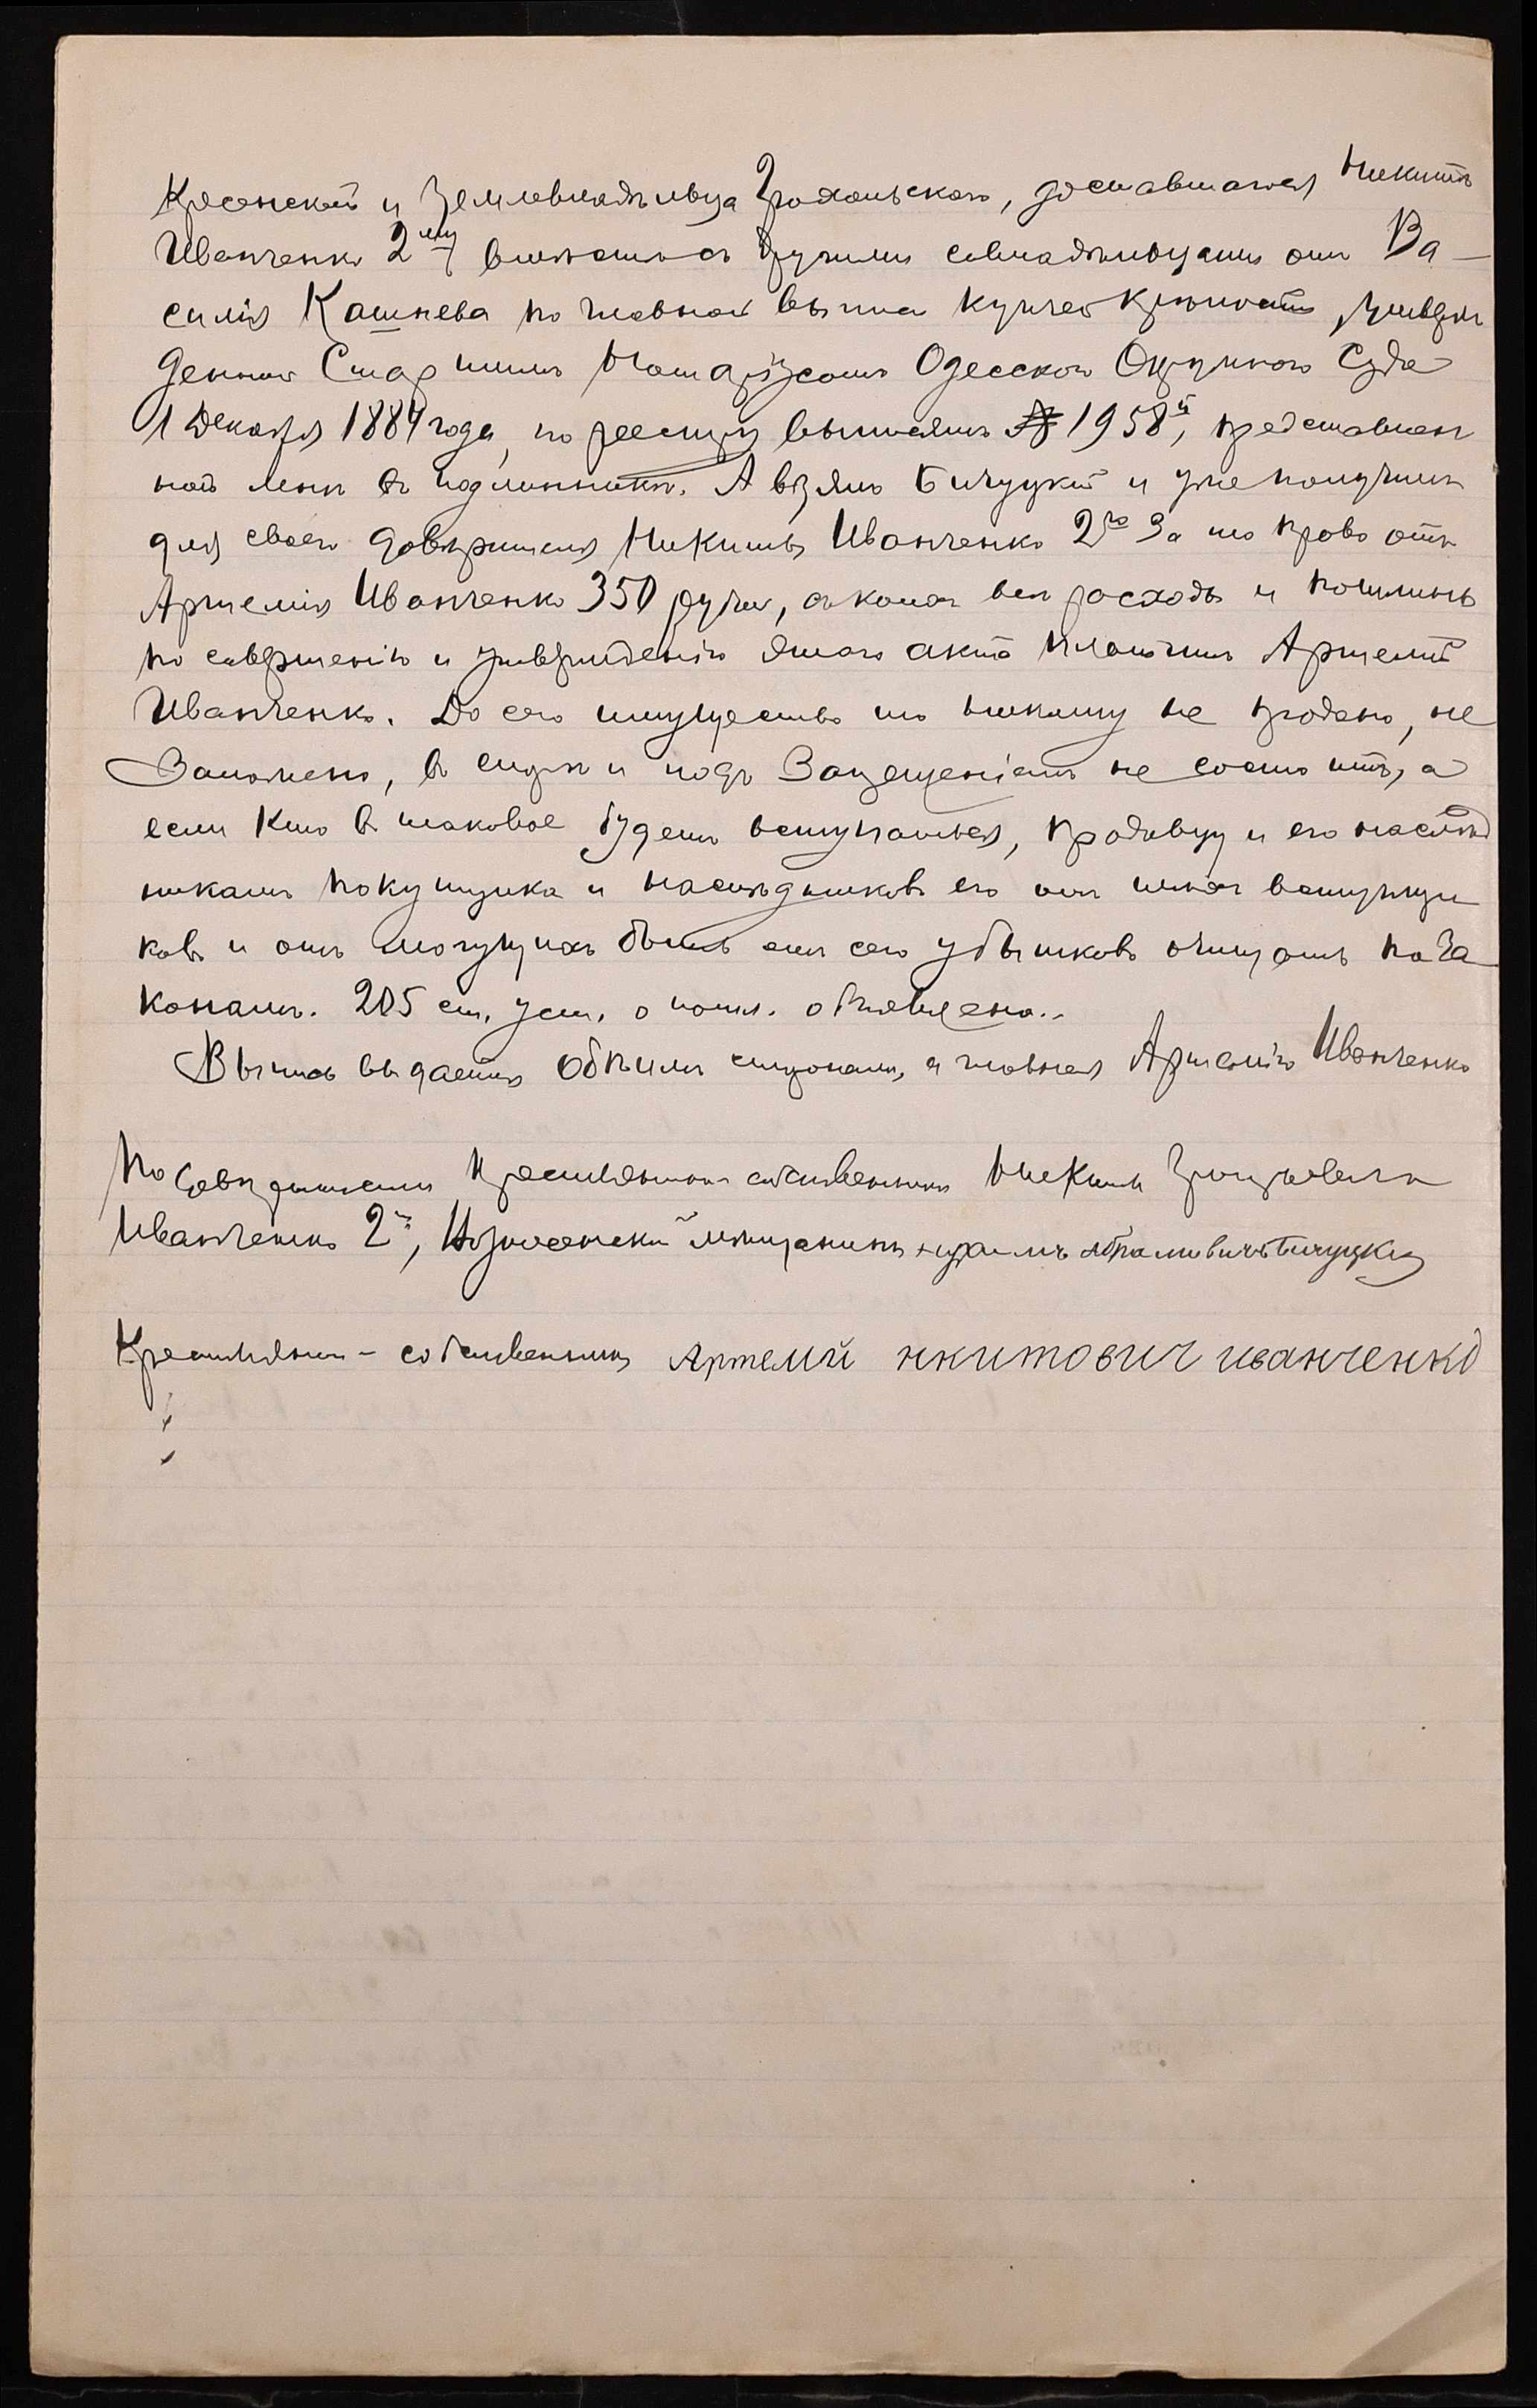 и Землевладельца Грохольскаго, доставшагося Никитѣ
Иванченко 2му вмѣстѣ съ другими совладѣльцами отъ Ва-
силія Кашнева по главной выписи купчей крѣпости, утверж
денной Старшимъ Нотаріусомъ Одесскаго Окружнаго Суда
1 Декабря 1884 года, по реестру № 1958й, представлен
ной мнѣ въ подлинникѣ. А взялъ Бичуцкій и уже получилъ
для своего довѣрителя Никиты Иванченко 2го за то право отъ
Артемія Иванченко 350 рублей, съ коихъ всѣ расходы и пошлины
по совершенію и утвержденію этого акта платитъ Артемій
Иванченко. До сего имущество то никому не продано, не
заложено, въ спорѣ и подъ запрещеніемъ не состоитъ, а
если кто въ таковое будетъ вступаться, продавцу и его наслѣд
никамъ покупщика и наслѣдниковъ его отъ тѣхъ вступщи
ковъ и отъ могущихъ быть отъ сего убытковъ очищать по за
конамъ. 205 ст. уст. о пошл. объявлена.
Выпись выдается обѣимъ сторонамъ, а главная Артемію Иванченко
По довѣренности крестьянина собственника Никиты Григорьевича
Иванченко 2го, Вознесенскій мѣщанинъ Абрамовичъ Бичуцкій
Крестьянинъ-собственникъ Артемий нкитович иванченко